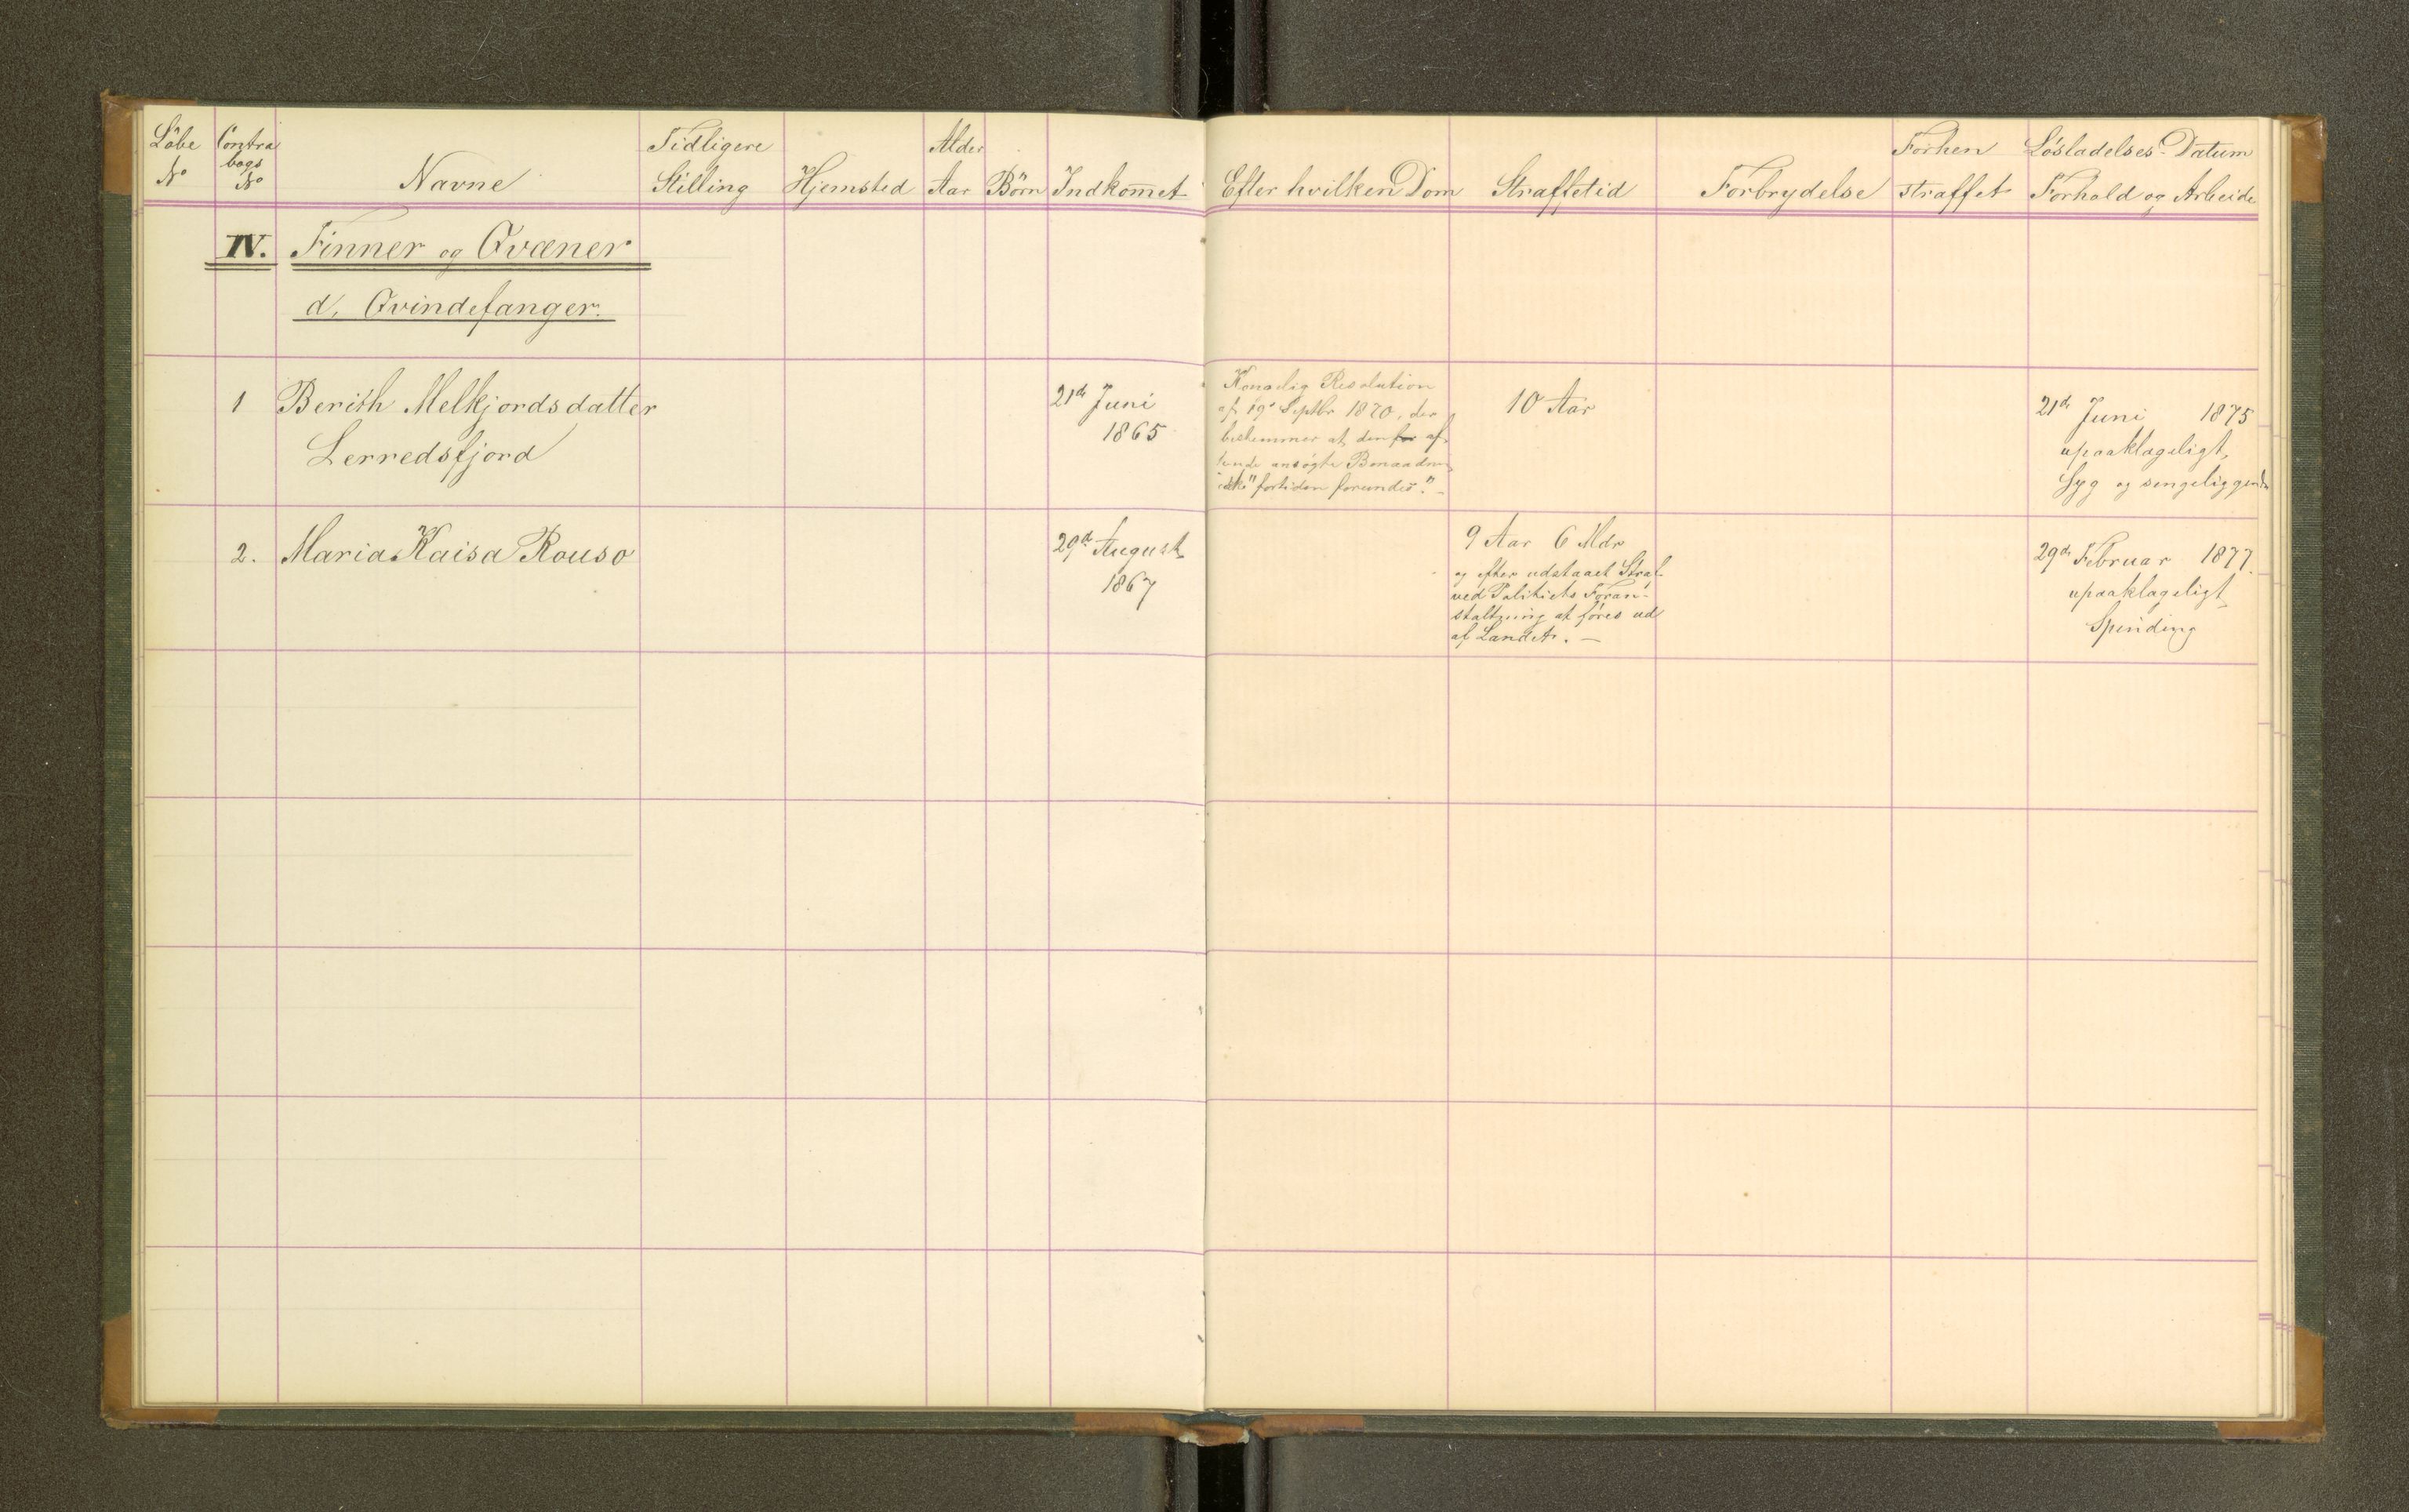 Löbe
No
Contra
bogs
No
Navne
Tidligere
Stilling
Hjemsted
Alder
Aar
Börn
Indkomet
Efter hvilken Dom
Straffetid
Forbrydelse
Forhen
straffet
Lösladelses-Datum
Forhold og Arbeide
IV. Finner og Qvæner
d, Qvindefanger.
1 Berith Melkjordsdatter
Lerredsfjord
21de Juni
1865
Kongelig Resolution
af 19de Septbr 1870, der
bestemmer at den for af
ansögte Benaadn
"ikke" fortiden forundes." -
10 Aar
21de Juni 1875
upaaklageligt,
Syg og sengeliggende
2. Maria Kaisa Rouso
29de August
1867
9 Aar 6 Mdr
og efter udstaaet Straf
ved Politiets Foran-
staltning at föres ud
af Landet. —
29de Februar 1877.
upaaklageligt
Spinding